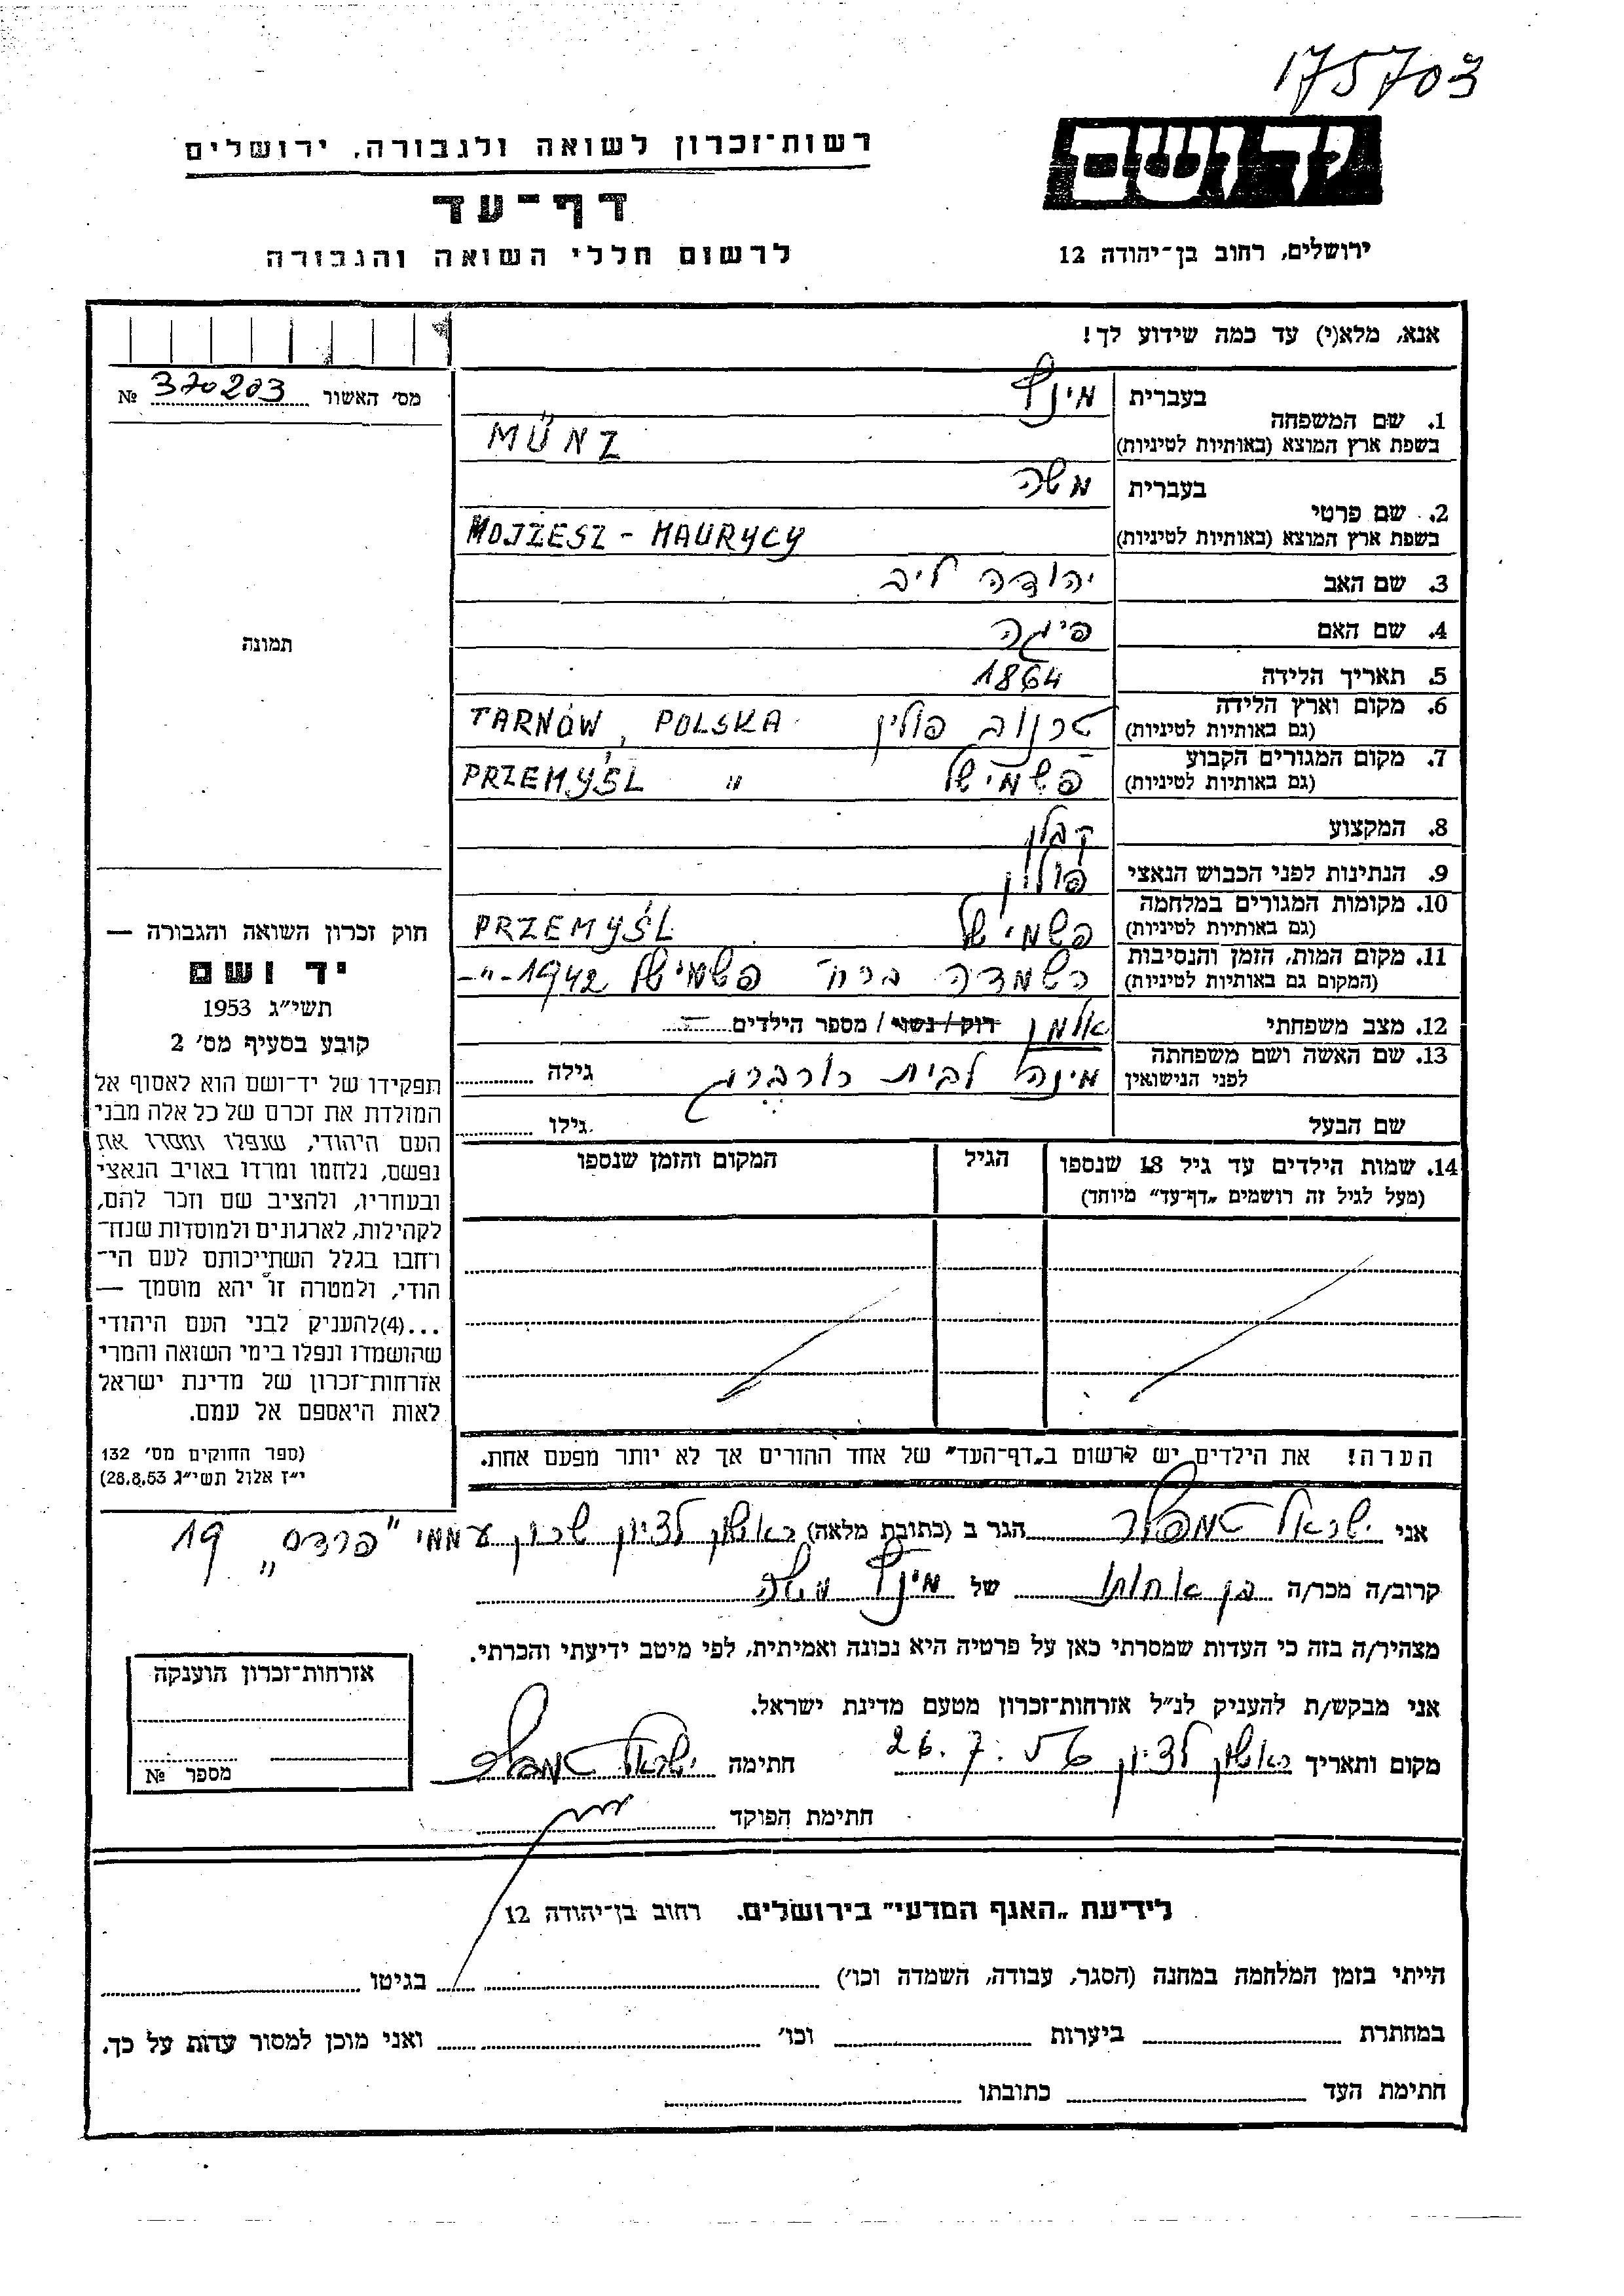 175703
יד ושם
רשות־זכרון לשואה ולגבורה, ירושלים
דף־עד
לרשום חללי השואה והגבורה
ירושלים, רחוב בן־יהודה 12
אנא, מלא(י) עד כמה שידוע לך!
מס' האשור 370203 №
1. שם המשפחה בעברית מינץ
בשפת ארץ המוצא (באותיות לטיניות) MÜNZ
2. שם פרטי בעברית משה
בשפת ארץ המוצא (באותיות לטיניות) MOJŻESZ - MAURYCY
3. שם האב יהודה ליב
4. שם האם פיגה
5. תאריך הלידה 1864
6. מקום וארץ הלידה טרנוב פולין TARNÓW, POLSKA
(גם באותיות לטיניות)
7. מקום המגורים הקבוע פשמישל PRZEMYŚL "
(גם באותיות לטיניות)
8. המקצוע קבלן
9. הנתינות לפני הכבוש הנאצי פולין
10. מקומות המגורים במלחמה פשמישל PRZEMYŚL
(גם באותיות לטיניות)
11. מקום המות, הזמן והנסיבות השמדה ברח' פשמישל 1942 -"-
(המקום גם באותיות לטיניות)
12. מצב משפחתי אלמן רווק / נשוי / מספר הילדים
13. שם האשה ושם משפחתה לפני הנישואין מינה לבית גילה
שם הבעל גילו
14. שמות הילדים עד גיל 18 שנספו הגיל המקום והזמן שנספו
(מעל לגיל זה רושמים „דף־עד" מיוחד)
הערה! את הילדים יש לרשום ב„דף־העד" של אחד ההורים אך לא יותר מפעם אחת.
תמונה
חוק זכרון השואה והגבורה —
יד ושם
תשי"ג 1953
קובע בסעיף מס' 2
תפקידו של יד־ושם הוא לאסוף אל
המולדת את זכרם של כל אלה מבני
העם היהודי, שנפלו ומסרו את
נפשם, נלחמו ומרדו באויב הנאצי
ובעוזריו, ולהציב שם וזכר להם,
לקהילות, לארגונים ולמוסדות שנח־
רחבו בגלל השתייכותם לעם הי־
הודי, ולמטרה זו יהא מוסמך —
...(4)להעניק לבני העם היהודי
שהושמדו ונפלו בימי השואה והמרי
אזרחות־זכרון של מדינת ישראל
לאות היאספם אל עמם.
(ספר החוקים מס' 132
י"ז אלול תשי"ג 28.8.53)
אני ישראל טמפלר הגר ב (כתובת מלאה) ראשון לציון שכון עממי "פרדס" 19
קרוב/ה מכר/ה בן אחותו של מינץ משה
מצהיר/ה בזה כי העדות שמסרתי כאן על פרטיה היא נכונה ואמיתית, לפי מיטב ידיעתי והכרתי.
אני מבקש/ת להעניק לנ"ל אזרחות־זכרון מטעם מדינת ישראל.
מקום ותאריך ראשון לציון 26.7.56 חתימה ישראל טמפלר
חתימת הפוקד
אזרחות־זכרון הוענקה
מספר №
לידיעת „האגף המדעי" בירושלים. רחוב בן־יהודה 12
הייתי בזמן המלחמה במחנה (הסגר, עבודה, השמדה וכו') בגיטו
במחתרת ביערות וכו' ואני מוכן למסור עדות על כך.
חתימת העד כתובתו